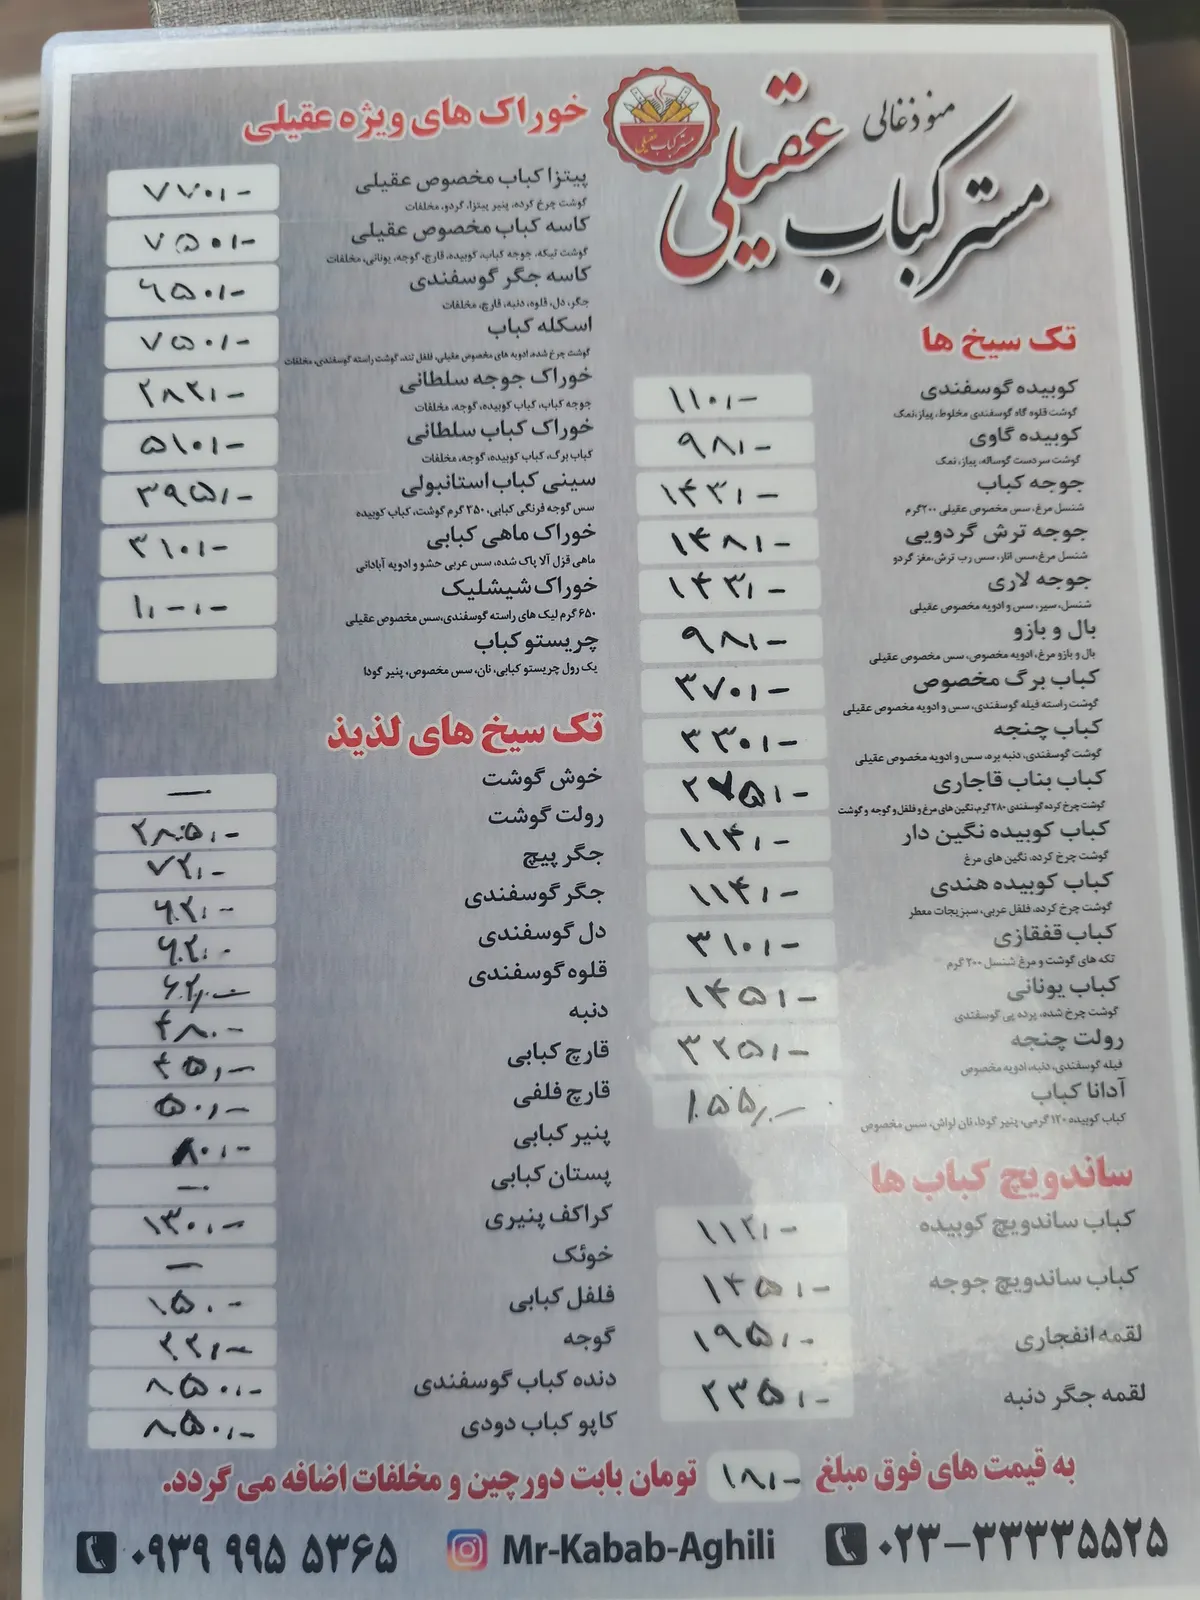 منو ذغالی
مستر کباب عقیلی
مستر کباب عقیلی
تک سیخ ها
کوبیده گوسفندی ۱۱۰/-
گوشت قلوه گاه گوسفندی مخلوط، پیاز،نمک
کوبیده گاوی ۹۸/-
گوشت سردست گوساله، پیاز، نمک
جوجه کباب ۱۴۳/-
شنسل مرغ، سس مخصوص عقیلی ۲۰۰گرم
جوجه ترش گردویی ۱۴۸/-
شنسل مرغ،سس انار، سس رب ترش،مغز گردو
جوجه لاری ۱۴۳/-
شنسل، سیر، سس و ادویه مخصوص عقیلی
بال و بازو ۹۸/-
بال و بازو مرغ، ادویه مخصوص، سس مخصوص عقیلی
کباب برگ مخصوص ۳۷۰/-
گوشت راسته فیله گوسفندی، سس و ادویه مخصوص عقیلی
کباب چنجه ۳۳۰/-
گوشت گوسفندی، دنبه بره، سس و ادویه مخصوص عقیلی
کباب بناب قاجاری
گوشت چرخ کرده گوسفندی ۲۸۰گرم،نگین های مرغ و فلفل و گوجه و گوشت
کباب کوبیده نگین دار ۱۱۴/-
گوشت چرخ کرده، نگین های مرغ
کباب کوبیده هندی ۱۱۴/-
گوشت چرخ کرده، فلفل عربی، سبزیجات معطر
کباب قفقازی ۳۱۰/-
تکه های گوشت و مرغ شنسل ۲۰۰ گرم
کباب یونانی ۱۴۵/-
گوشت چرخ شده، پرده پی گوسفندی
رولت چنجه ۳۲۵/-
فیله گوسفندی، دنبه، ادویه مخصوص
آدانا کباب
کباب کوبیده ۱۲۰ گرمی، پنیر گودا، نان لواش، سس مخصوص
ساندویچ کباب ها
کباب ساندویچ کوبیده ۱۱۲/-
کباب ساندویچ جوجه ۱۴۵/-
لقمه انفجاری ۱۹۵/-
لقمه جگر دنبه ۲۳۵/-
خوراک های ویژه عقیلی
پیتزا کباب مخصوص عقیلی ۷۷۰/-
گوشت چرخ کرده، پنیر پیتزا، گردو، مخلفات
کاسه کباب مخصوص عقیلی ۷۵۰/-
گوشت تیکه، جوجه کباب، کوبیده، قارچ، گوجه، یونانی، مخلفات
کاسه جگر گوسفندی ۶۵۰/-
جگر، دل، قلوه، دنبه، قارچ، مخلفات
اسکله کباب ۷۵۰/-
گوشت چرخ شده، ادویه های مخصوص عقیلی، فلفل تند، گوشت راسته گوسفندی، مخلفات
خوراک جوجه سلطانی ۲۸۲/-
جوجه کباب، کباب کوبیده، گوجه، مخلفات
خوراک کباب سلطانی ۵۱۰/-
کباب برگ، کباب کوبیده، گوجه، مخلفات
سینی کباب استانبولی ۳۹۵/-
سس گوجه فرنگی کبابی، ۲۵۰ گرم گوشت، کباب کوبیده
خوراک ماهی کبابی ۳۱۰/-
ماهی قزل آلا پاک شده، سس عربی حشو و ادویه آبادانی
خوراک شیشلیک ۱,۰۰۰/-
۶۵۰ گرم لیک های راسته گوسفندی،سس مخصوص عقیلی
چریستو کباب
یک رول چریستو کبابی، نان، سس مخصوص، پنیر گودا
تک سیخ های لذیذ
خوش گوشت —
رولت گوشت
جگر پیچ ۷۲/-
جگر گوسفندی ۶۲/-
دل گوسفندی ۶۲/-
قلوه گوسفندی
دنبه ۴۸۰-
قارچ کبابی ۴۵/-
قارچ فلفی ۵۰/-
پنیر کبابی ۸۰/-
پستان کبابی —
کراکف پنیری ۱۳۰/-
خوئک —
فلفل کبابی
گوجه
دنده کباب گوسفندی ۸۵۰/-
کاپو کباب دودی ۸۵۰/-
به قیمت های فوق مبلغ ۱۸/- تومان بابت دورچین و مخلفات اضافه می گردد.
۰۲۳-۳۳۳۳۵۵۲۵ Mr-Kabab-Aghili ۰۹۳۹ ۹۹۵ ۵۳۶۵